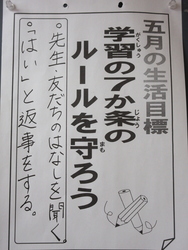 五月の生活目標
学習の7か条の
ルールを守ろう
。先生・友だちのはなしを聞く。
「はい」と返事をする。